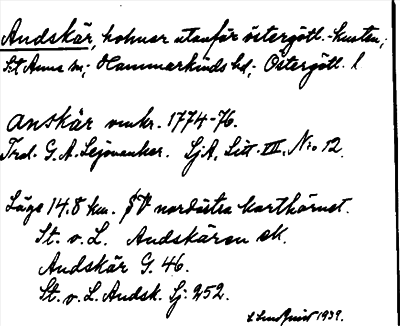 Andskär, holmar utanför östergötl.-kusten;
S:t Anna sn; Hammarkinds hd; Östergötl. l
Anskär omkr. 1774-76.
Trol. G. A. Lejonanker. SjA, Litt. III, N:o 12.
Läge 14.8 km. SV nordöstra karthörnet.
St. v. L. Andskären ek.
Andskär G. 46.
St. v. L. Andsk. Sj: 252.
1939.